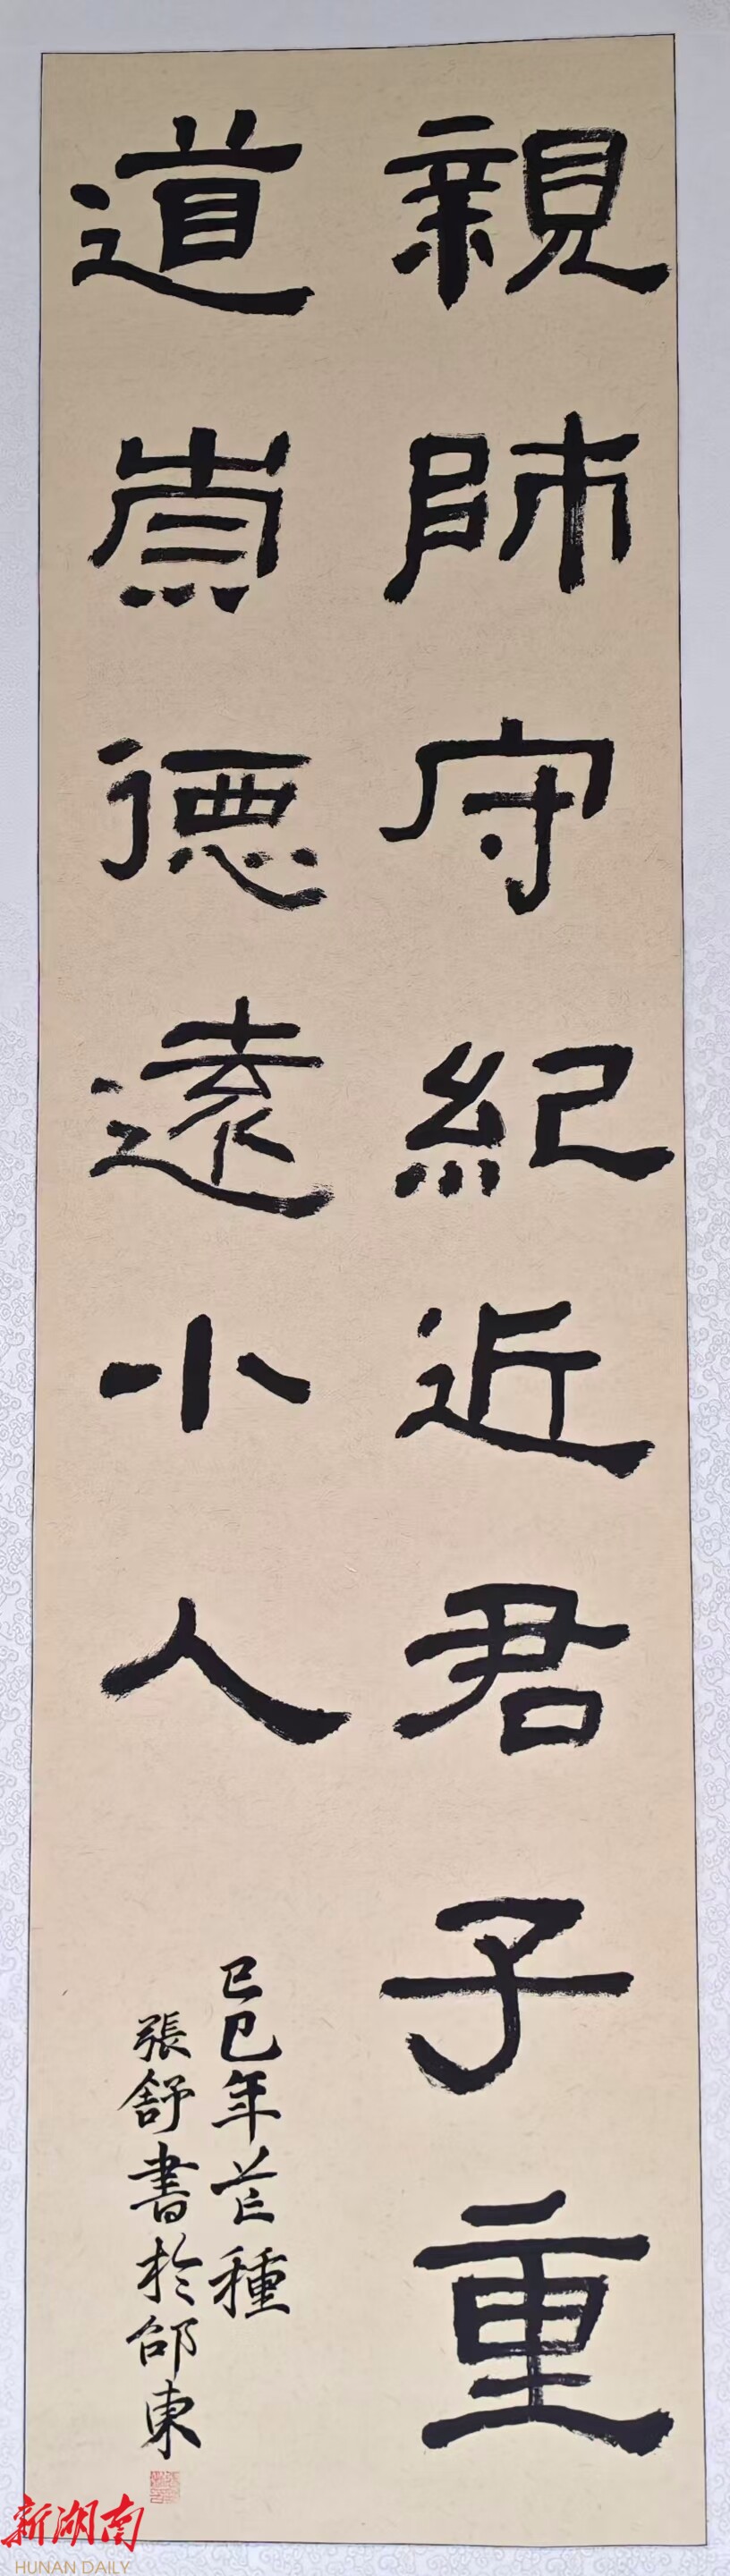 親師守紀近君子重
道崇德遠小人
己巳年芒種
張舒書於邵東
新湖南
HUNAN DAILY